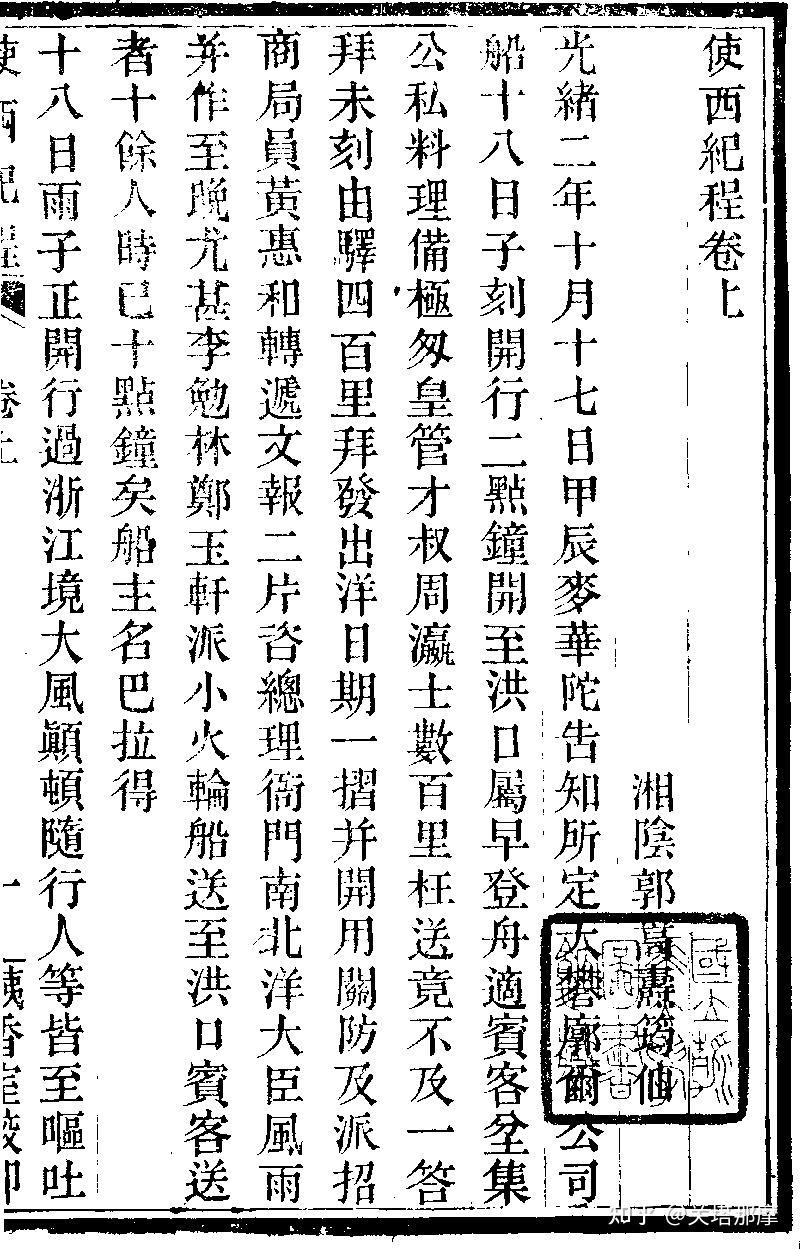 使西紀程卷上
湘陰郭嵩燾筠仙
光緒二年十月十七日甲辰麥華陀告知所定大礬廓爾公司
船十八日子刻開行二點鐘開至洪口屬早登舟適賓客坌集
公私料理備極匆皇管才叔周瀛士數百里枉送竟不及一答
拜未刻由驛四百里拜發出洋日期一摺幷開用關防及派招
商局員黃惠和轉遞文報二片咨總理衙門南北洋大臣風雨
幷作至晚尤甚李勉林鄭玉軒派小火輪船送至洪口賓客送
者十餘人時已十點鐘矣船主名巴拉得
十八日雨子正開行過浙江境大風顚頓隨行人等皆至嘔吐
使西紀程 卷上 一
知乎 @关塔那摩